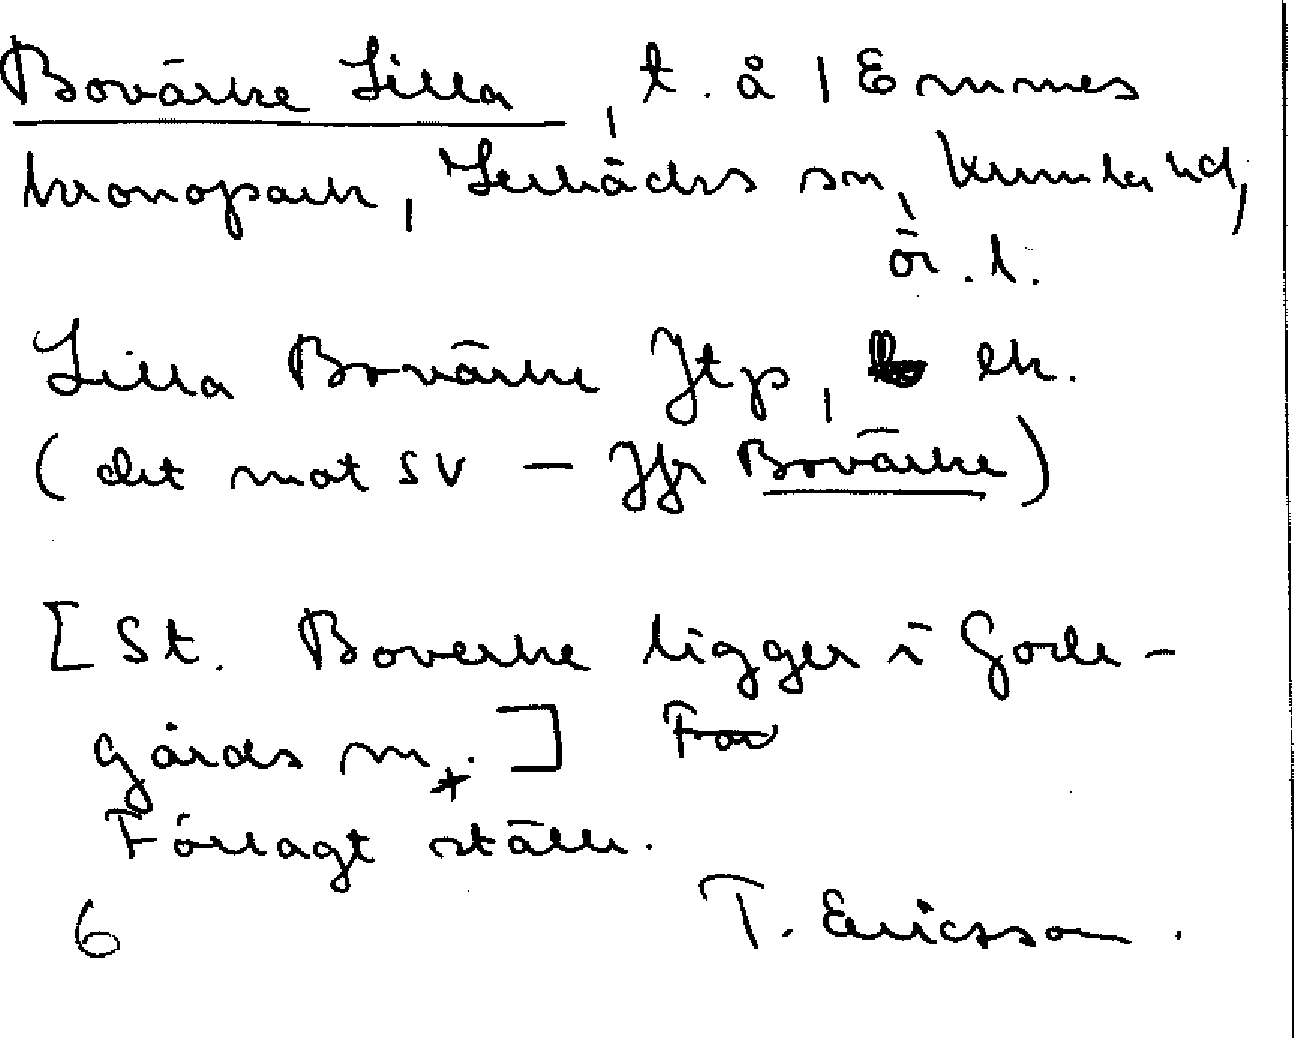 Bovärke Lilla, t. å 1 Emmes
kronopark, Lerbäcks sn, Kumla hd,
ör. l.
Lilla Bovärke Jtp, ek.
(det mot SV – Jfr Bovärke)
[St. Boverke ligger i Gode-
gårds sn.]
Förlagt ställe.
6 T. Ericsson.